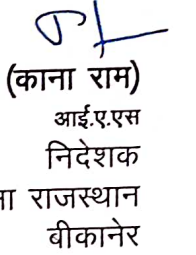 (काना राम)
आई.ए.एस
निदेशक
राजस्थान
बीकानेर